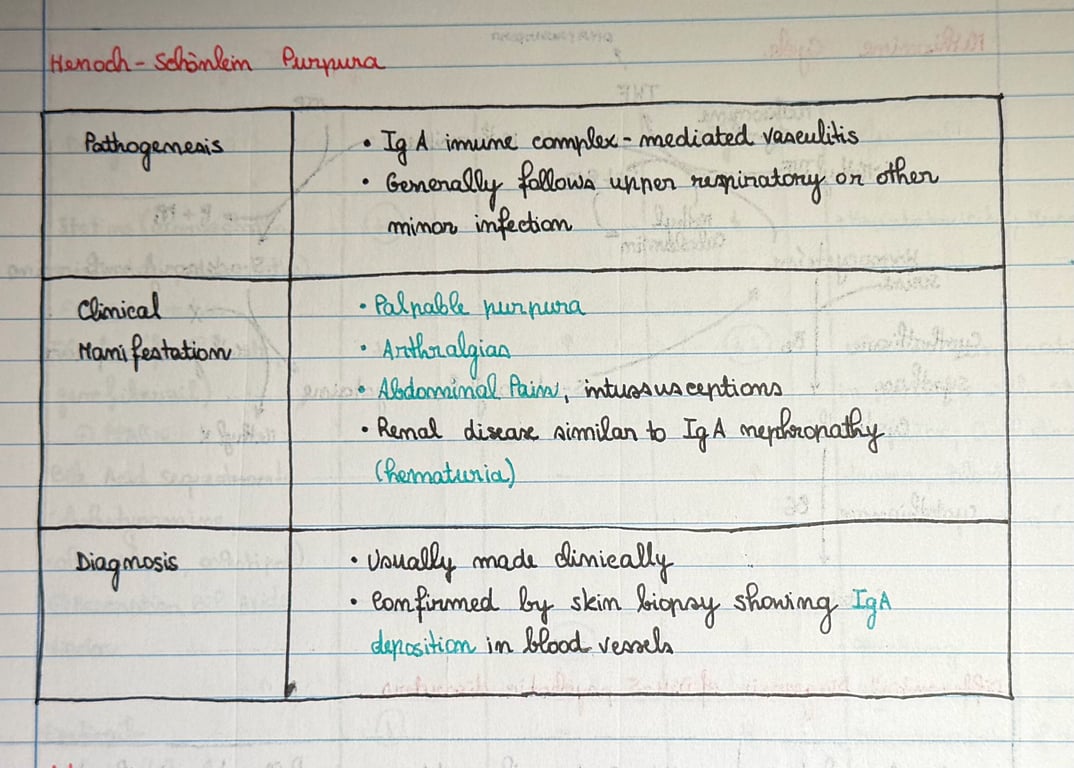 Henoch - Schönlein Purpura
Pathogenesis
• IgA imune complex - mediated vasculitis
• Generally follows upper respiratory or other
minor infection
Clinical
Manifestation
• Palpable purpura
• Arthralgias
• Abdominal Pain, intussusceptions
• Renal disease similar to IgA nephropathy
(hematuria)
Diagnosis
• Usually made clinically
• Confirmed by skin biopsy showing IgA
deposition in blood vessels